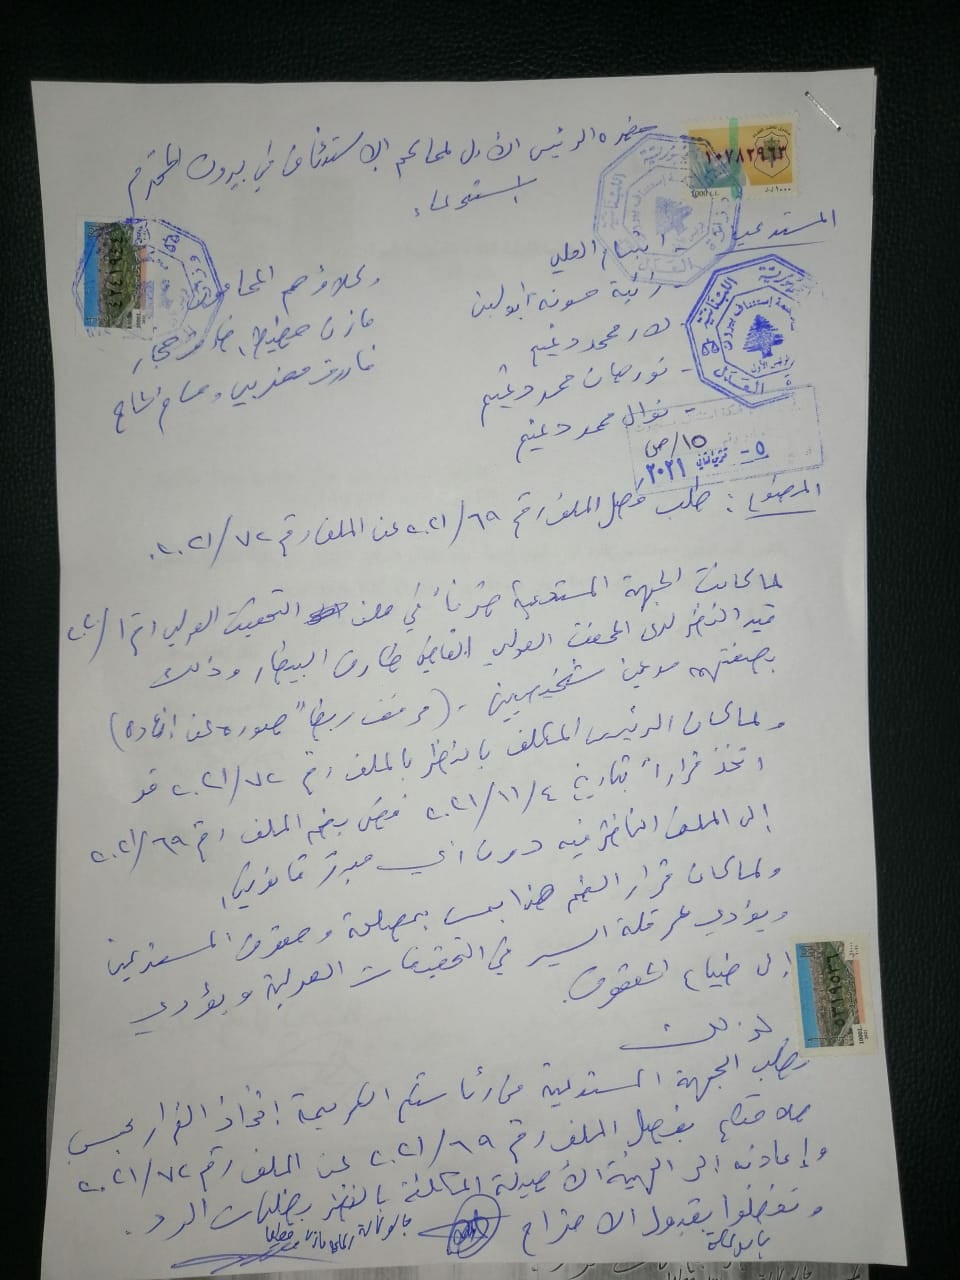 حضرة الرئيس الأول لمحاكم الاستئناف في بيروت المحترم
استدعاء
١٠٧٨٢٩٦٣
1000 L.L.
المستدعين
- ابتسام
- رانية حسونه ابو لبن
- لارا محمد دغيم
- نورهان محمد دغيم
- نوال محمد دغيم
وكلاؤهم المحامون
مازن حطيط، حجار
فاروق مغربي وحسام الحاج
١٥/ص
٥ - تشرين الثاني ٢٠٢١
الموضوع: طلب فصل الملف رقم ٦٩/٢٠٢١ عن الملف رقم ٧٢/٢٠٢١.
لما كانت الجهة المستدعية طرفاً في ملف التحقيق العدلي رقم ١/٢٠٢٠
قيد النظر لدى المحقق العدلي القاضي طارق البيطار وذلك
بصفتهم مدعين شخصيين - (مرفق ربطاً صورة عن افادة)
ولما كان الرئيس المكلف بالنظر بالملف رقم ٧٢/٢٠٢١ قد
اتخذ قراراً بتاريخ ٤/١١/٢٠٢١ قضى بضم الملف رقم ٦٩/٢٠٢١
إلى الملف الناظر فيه دون اي مبرر قانوني
ولما كان قرار الضم هذا يمس بمصلحة وحقوق المستدعين
ويؤدي عرقلة السير في التحقيقات العدلية ويؤدي
إلى ضياع الحقوق.
لذلك
تطلب الجهة المستدعية من رئاستكم الكريمة اتخاذ القرار بحسب
بفصل الملف رقم ٦٩/٢٠٢١ عن الملف رقم ٧٢/٢٠٢١
وإعادته الى الهيئة الأصيلة المكلفة بالنظر بطلبات الرد.
وتفضلوا بقبول الاحترام
بالوكالة
بالوكالة